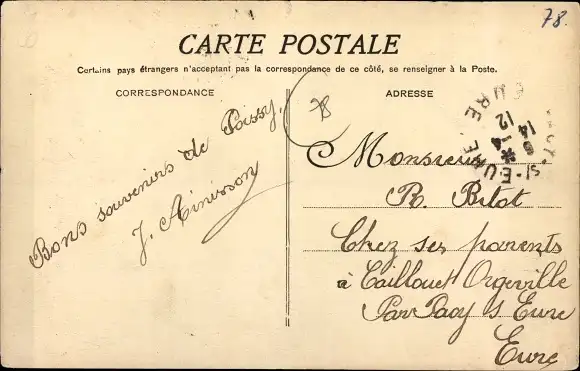 78.
CARTE POSTALE
Certains pays étrangers n'acceptant pas la correspondance de ce côté, se renseigner à la Poste.
CORRESPONDANCE
ADRESSE
78
Bons souvenirs de Poissy.
J. Ainisson
Monsieur
R. Bitot
Chez ses parents
à Caillouet Orgeville
Par Pacy s Eure
Eure
S/-EURE
EURE
12
14